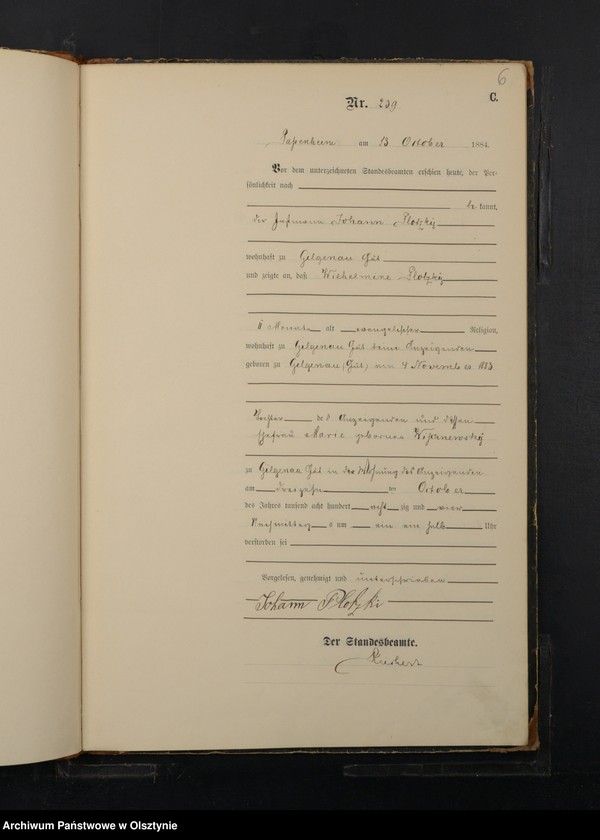 6
C.
Nr. 239
am 13 October 1884.
Vor dem unterzeichneten Standesbeamten erschien heute, der Per-
sönlichkeit nach
kannt,
der Johann Plotzki
wohnhaft zu Gelgenau Gut
und zeigte an, daß Wilhelmine Plotzki
Monate alt evangelischer Religion,
wohnhaft zu Gelgenau Gut beim Anzeigenden
geboren zu Gelgenau (Gut) am 4 November 1883
Tochter des Anzeigenden und dessen
Ehefrau Marie geborenen
zu Gelgenau Gut in der Wohnung des Anzeigenden
am dreizehn ten October
des Jahres tausend acht hundert acht zig und vier
Nachmittag s um ein ein halb Uhr
verstorben sei
Vorgelesen, genehmigt und unterschrieben
Johann Plotzki
Der Standesbeamte.
Archiwum Państwowe w Olsztynie